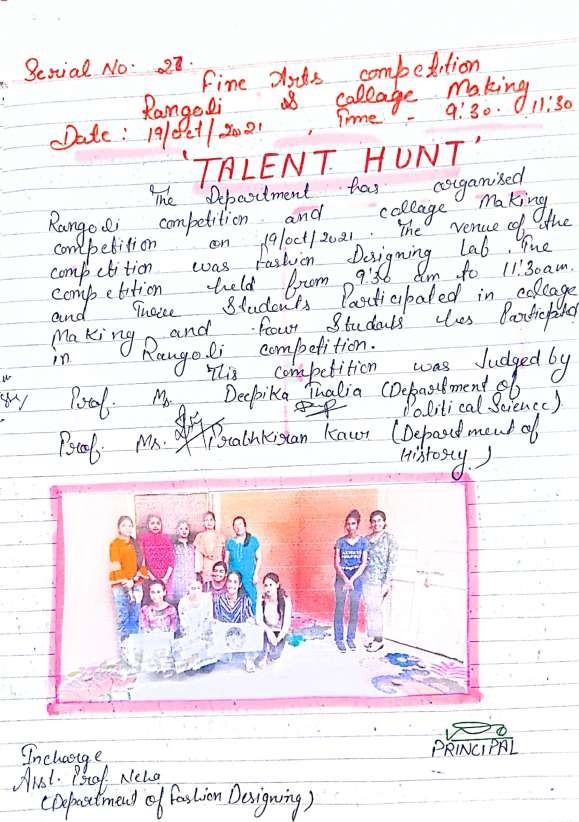 Serial No: 27.
Fine Arts competition
Rangoli & Callage Making
Date: 19/oct/2021, Time - 9:30. 11:30
'TALENT HUNT'
The Department has organised
Rangoli competition and collage Making
competition on 19/oct/2021. The venue of the
competition was Fashion Designing Lab. The
competition held from 9:30 am to 11:30am.
and Three Students Participated in collage
Making and four Students has Participated
in Rangoli competition.
This competition was Judged by
Prof. Ms. Deepika Thalia (Department of
Political Science)
Prof. Ms. Prabhkiran Kaur (Department of
History)
PRINCIPAL
Incharge
Asst. Prof. Neha
(Department of Fashion Designing)